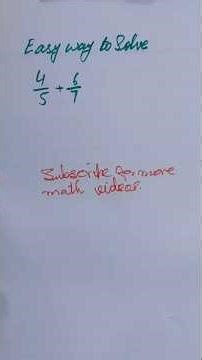 Easy way to Solve
4/5 + 6/7
Subscribe for more
math videos.